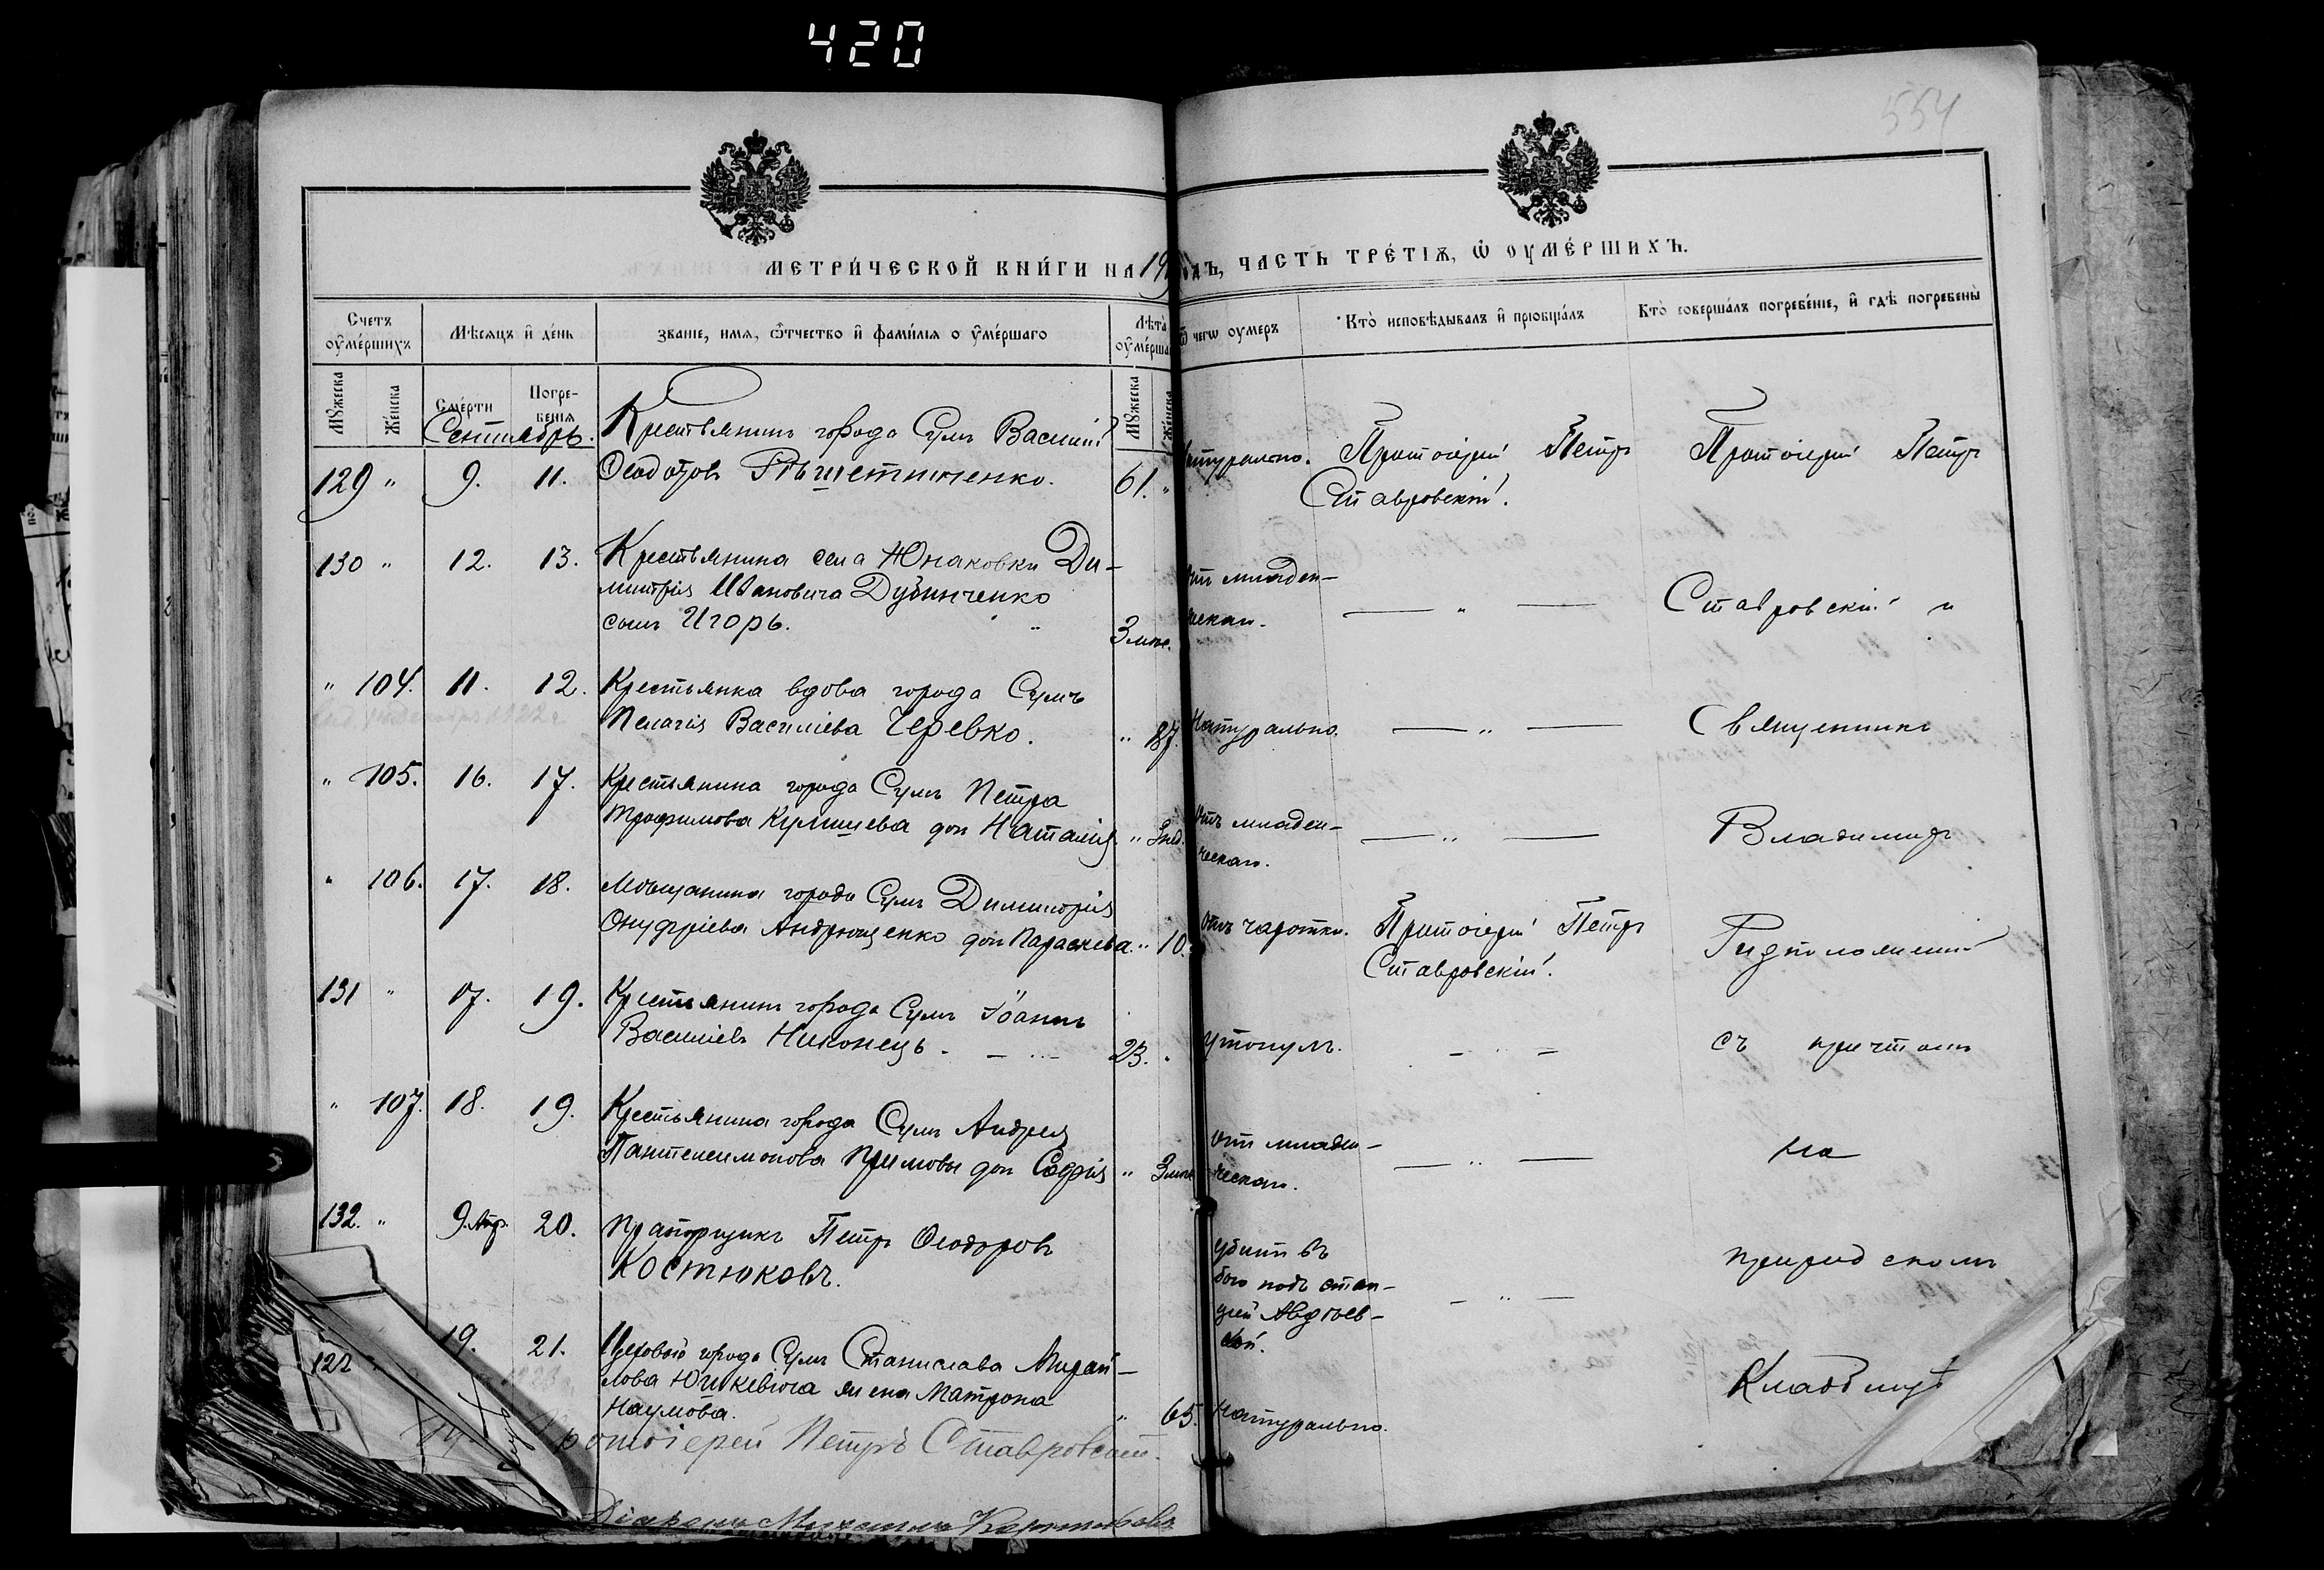 420
554
МЕТРИ́ЧЕСКОЙ КНИ́ГИ НА 19 ГОДЪ, ЧАСТЬ ТРЕ́ТІѦ, Ѡ ОУМЕ́РШИХЪ.
Счетъ оуме́ршихъ
Мѣсѧцъ и де́нь
зва́ніе, имѧ, ѿтчество и фами́лїѧ оуме́ршаго
Лѣта оуме́рша
Ѿ чегѡ оумеръ
Кто̀ исповѣ́дывалъ и пріобща́лъ
Кто̀ соверша́лъ погребе́ніе, и гдѣ̀ погребены̀
Мꙋжеска
Же́нска
Сме́рти
Погре-
бенїѧ
Мꙋжеска
Женска
Сентябрь.
Крестьянинъ города Сумъ Василій
129 " 9. 11. Ѳеодотовъ Рѣшетниченко. 61. "
натурально. Протоіерей Петръ
Ставровскій.
Протоіерей Петръ
130 " 12. 13. Крестьянина села Юнаковки Ди-
митрія Ивановича Дубинченко
сынъ Игорь. 3 мѣс.
отъ младен-
ческаго. — " —
Ставровскій и
" 104. 11. 12. Крестьянка вдова города Сумъ
Пелагія Василіева Черевко. " 87.
Натурально. — " —
Священникъ
" 105. 16. 17. Крестьянина города Сумъ Петра
Трофимова дочь Наталія "
отъ младен-
ческаго. — " —
Владимиръ
" 106. 17. 18. Мѣщанина города Сумъ Димитрія
Онуфріева Андрющенко дочь Параскева. " 10.
отъ чахотки. Протоіерей Петръ
Ставровскій.
131 " 17. 19. Крестьянинъ города Сумъ Іоаннъ
Василіевъ Никонецъ. 23. "
утонулъ. — " —
съ причтомъ
" 107. 18. 19. Крестьянина города Сумъ Андрея
Пантелеимонова дочь Софія " 3 мѣс.
отъ младен-
ческаго. — " —
на
132. " 9. Апр. 20. Прапорщикъ Петръ Ѳеодоровъ
Костюковъ.
убитъ въ
бою подъ стан-
ціей Авдѣев-
кой. — " —
приходскомъ
19. 21. Цеховаго города Сумъ Станислава Михай-
лова Юшкевича жена Матрона
Наумова. " 65.
Натурально.
Кладбищѣ
122
Протоіерей Петръ Ставровскій.
Діаконъ Михаилъ